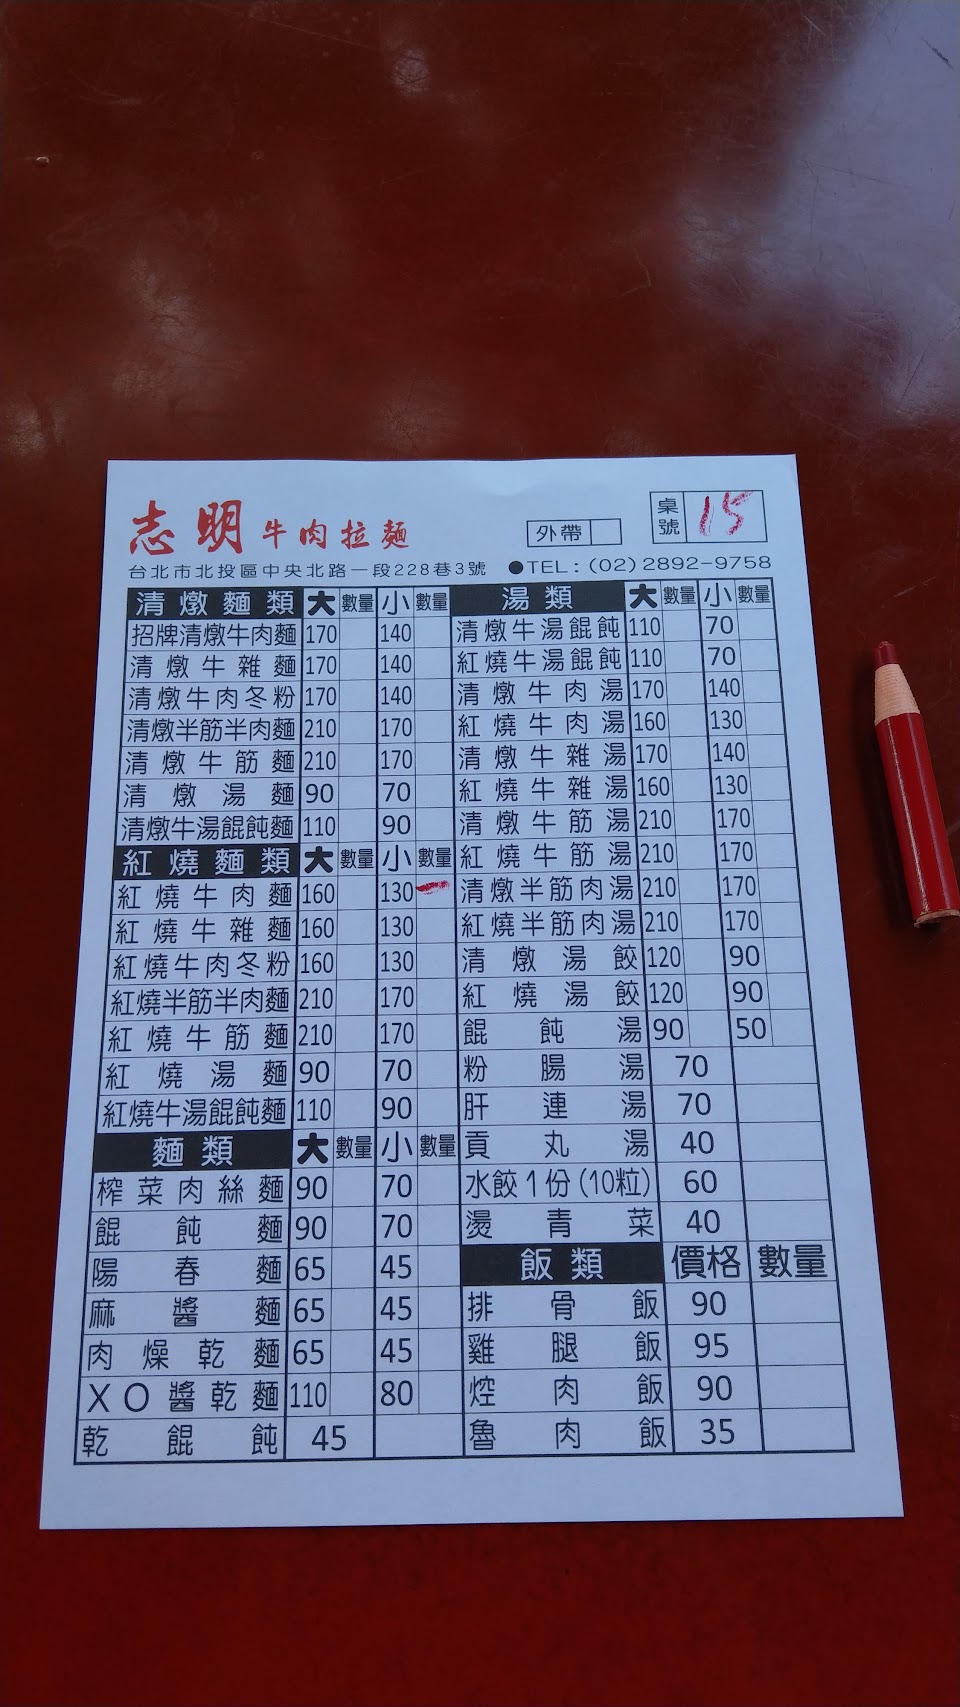 志明牛肉拉麵
外帶
桌號 15
台北市北投區中央北路一段228巷3號 ●TEL:(02)2892-9758
清燉麵類 大 數量 小 數量
招牌清燉牛肉麵 170 140
清燉牛雜麵 170 140
清燉牛肉冬粉 170 140
清燉半筋半肉麵 210 170
清燉牛筋麵 210 170
清燉湯麵 90 70
清燉牛湯餛飩麵 110 90
紅燒麵類 大 數量 小 數量
紅燒牛肉麵 160 130 一
紅燒牛雜麵 160 130
紅燒牛肉冬粉 160 130
紅燒半筋半肉麵 210 170
紅燒牛筋麵 210 170
紅燒湯麵 90 70
紅燒牛湯餛飩麵 110 90
麵類 大 數量 小 數量
榨菜肉絲麵 90 70
餛飩麵 90 70
陽春麵 65 45
麻醬麵 65 45
肉燥乾麵 65 45
XO醬乾麵 110 80
乾餛飩 45
湯類 大 數量 小 數量
清燉牛湯餛飩 110 70
紅燒牛湯餛飩 110 70
清燉牛肉湯 170 140
紅燒牛肉湯 160 130
清燉牛雜湯 170 140
紅燒牛雜湯 160 130
清燉牛筋湯 210 170
紅燒牛筋湯 210 170
清燉半筋肉湯 210 170
紅燒半筋肉湯 210 170
清燉湯餃 120 90
紅燒湯餃 120 90
餛飩湯 90 50
粉腸湯 70
肝連湯 70
貢丸湯 40
水餃1份(10粒) 60
燙青菜 40
飯類 價格 數量
排骨飯 90
雞腿飯 95
焢肉飯 90
魯肉飯 35